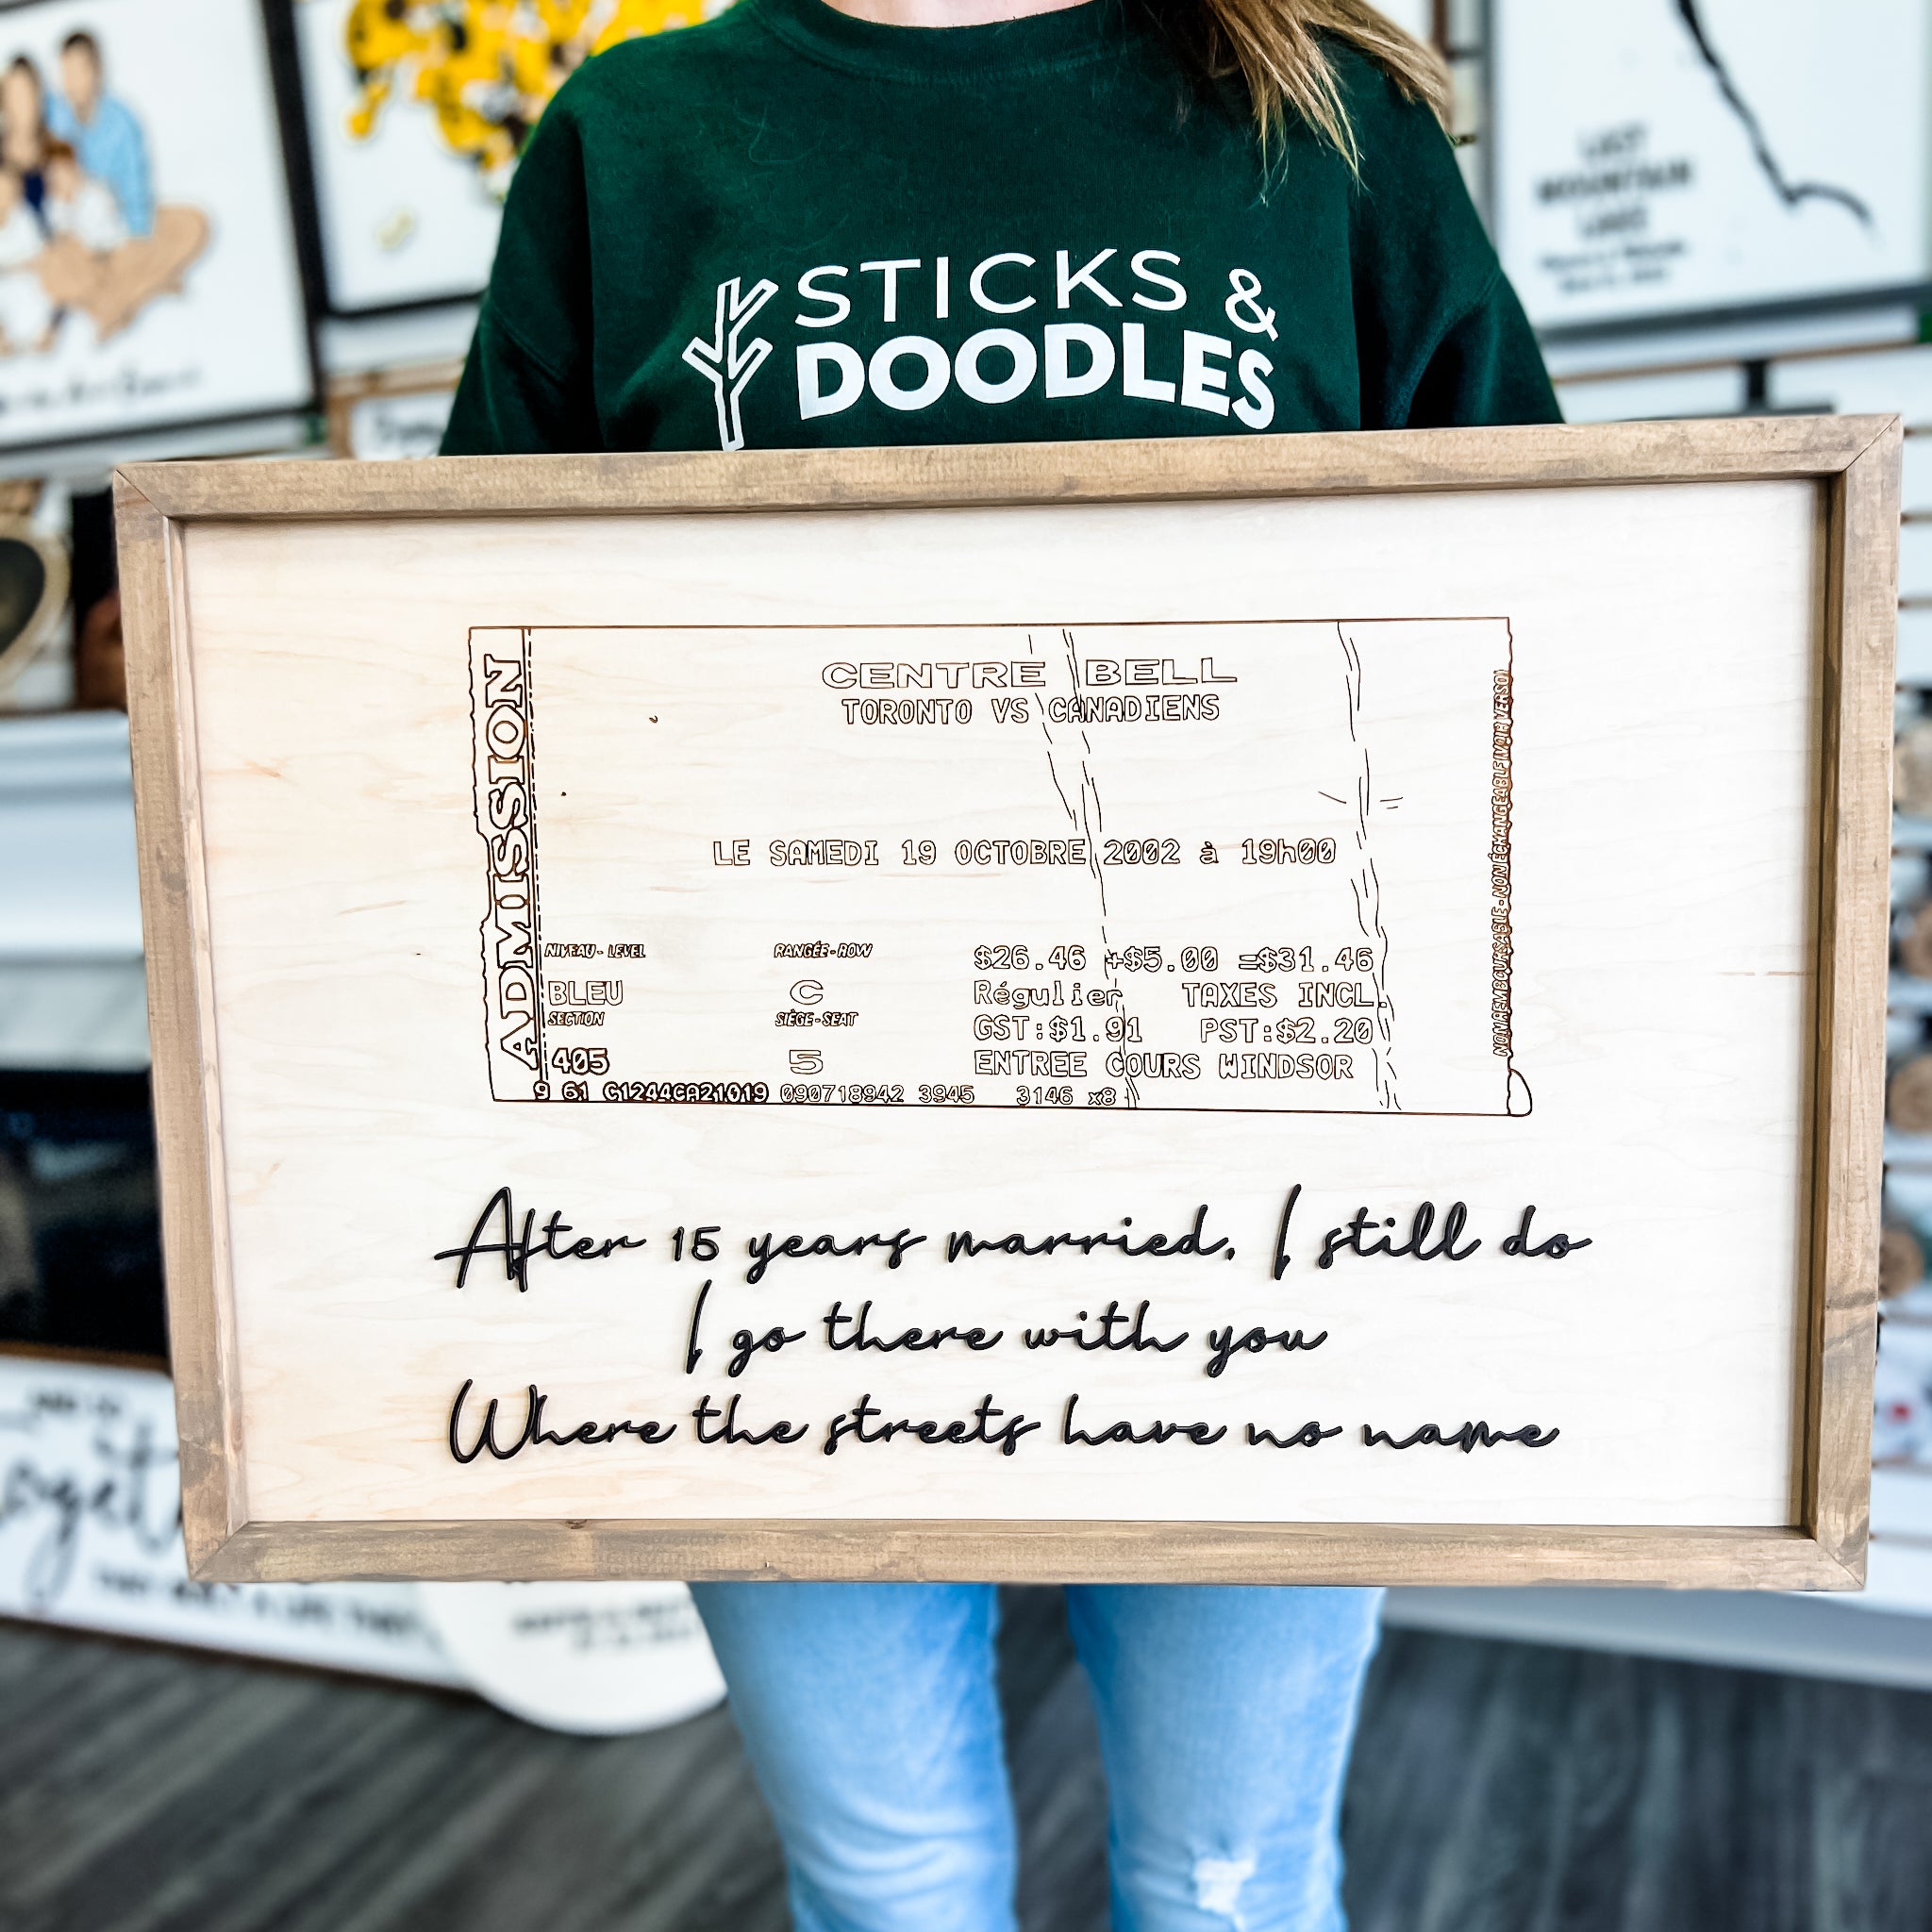 STICKS &
DOODLES
LAST
MOUNTAIN
LAKE
ADMISSION
CENTRE BELL
TORONTO VS CANADIENS
LE SAMEDI 19 OCTOBRE 2002 à 19h00
NIVEAU - LEVEL RANGÉE - ROW $26.46 +$5.00 =$31.46
BLEU C Régulier TAXES INCL.
SECTION SIÈGE - SEAT GST:$1.91 PST:$2.20
405 5 ENTREE COURS WINDSOR
9 61 C1244CA21019 090718942 3945 3146 x8
NON REMBOURSABLE - NON ÉCHANGEABLE (VOIR VERSO)
After 15 years married, I still do
I go there with you
Where the streets have no name